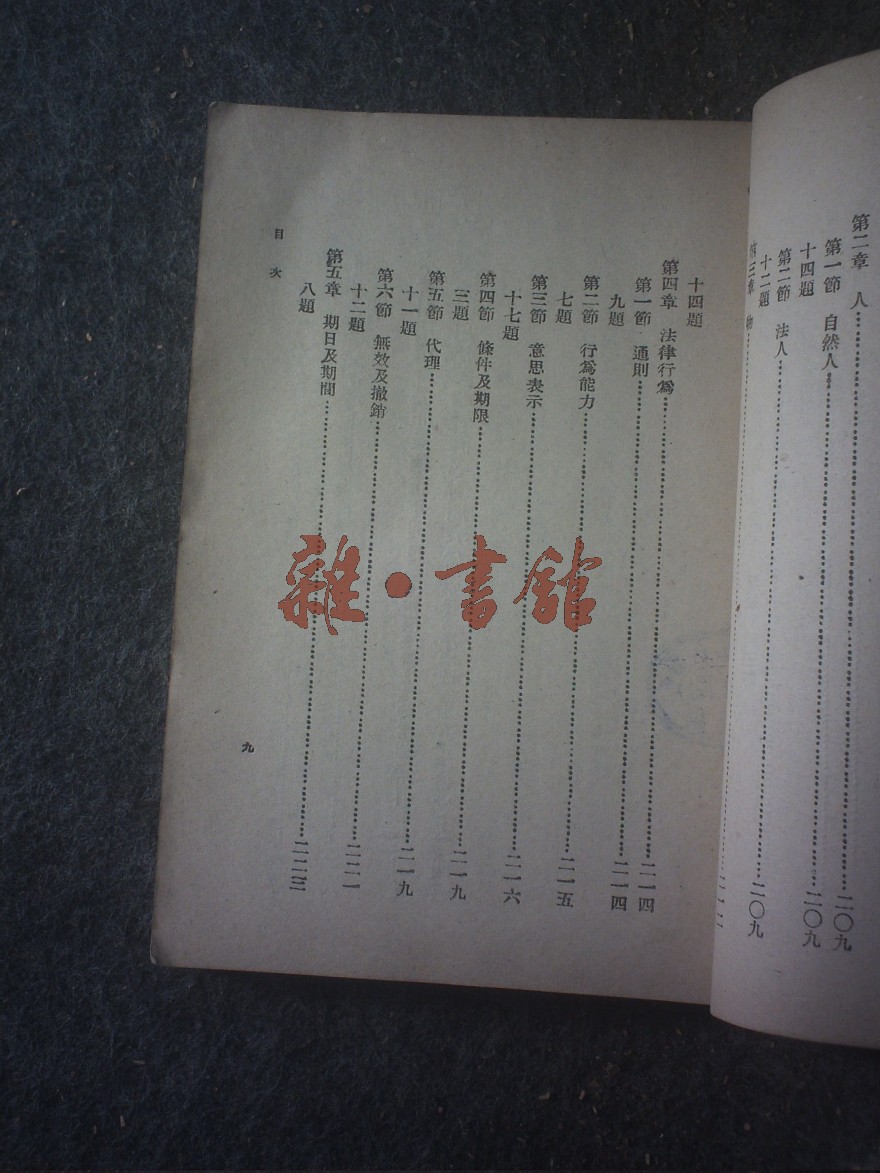 第二章 人……二〇九
第一節 自然人……二〇九
十四題
第二節 法人……二〇九
十二題
第三章 物
十四題
第四章 法律行爲……二一四
第一節 通則……二一四
九題
第二節 行爲能力……二一五
七題
第三節 意思表示……二一六
十七題
第四節 條件及期限……二一九
三題
第五節 代理……二一九
十一題
第六節 無效及撤銷……二二一
十二題
第五章 期日及期間……二二三
八題
目次
九
雜·書館